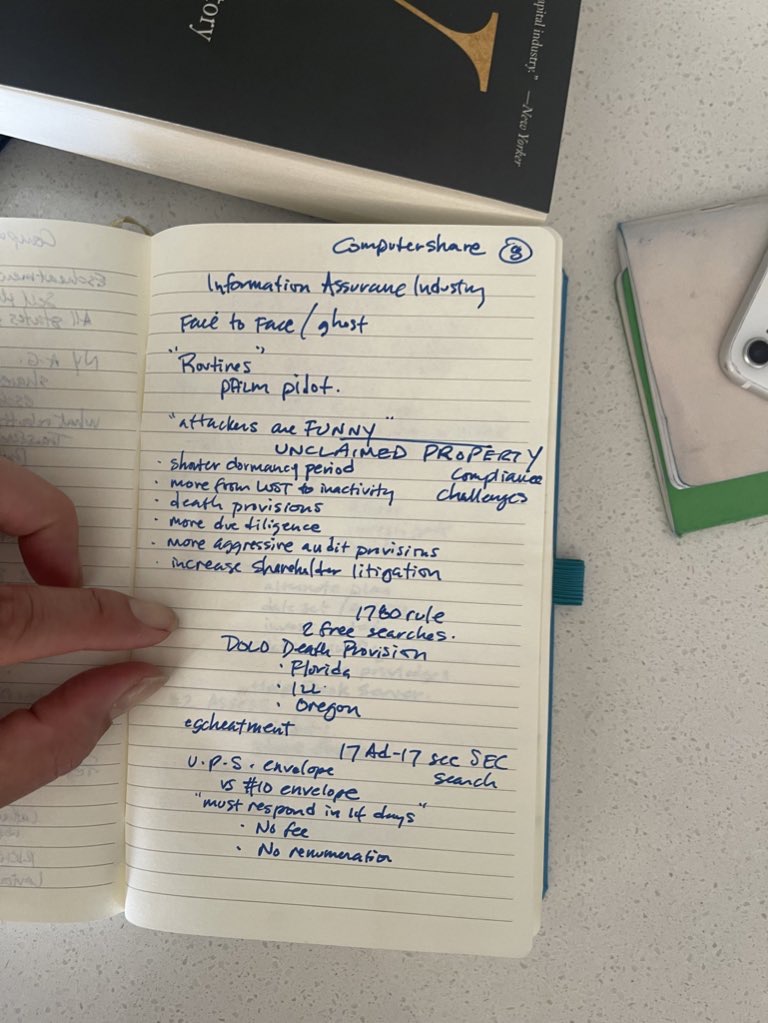 tory
apital industry." —New Yorker
Computershare 8
Information Assurance Industry
Face to Face / ghost
"Routines"
pALM pilot.
"attackers are FUNNY"
UNCLAIMED PROPERTY
compliance
challenges
· shorter dormancy period
· more from LOST to inactivity
· death provisions
· more due diligence
· more aggressive audit provisions
· increase shareholder litigation
17B0 rule
2 free searches.
DOLO Death Provision
· Florida
· ILL.
· Oregon
escheatment
17 Ad-17 sec SEC
search
U.P.S. envelope
vs #10 envelope
"must respond in 14 days"
· No fee
· No renumeration